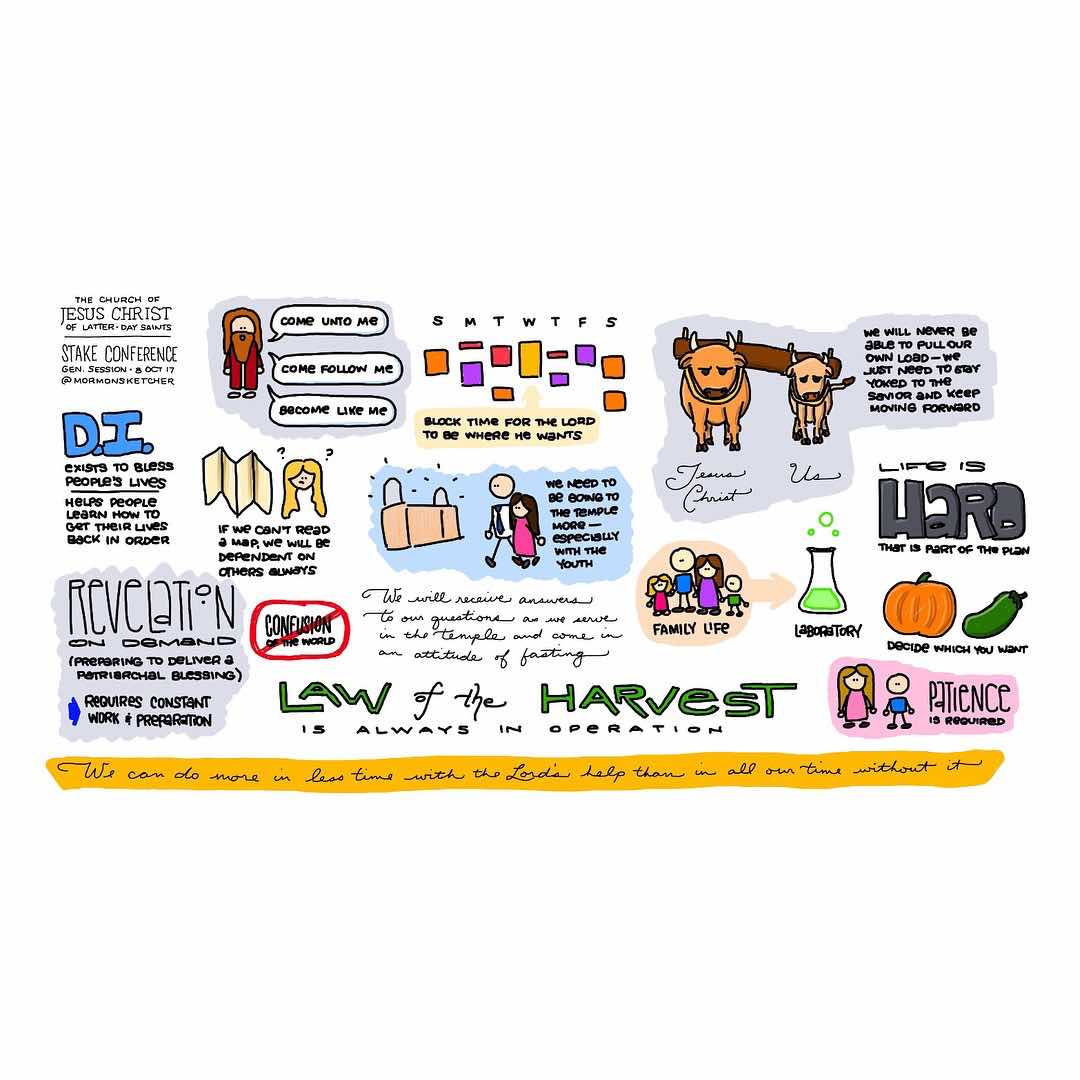 THE CHURCH OF
JESUS CHRIST
OF LATTER-DAY SAINTS
STAKE CONFERENCE
GEN. SESSION · 8 OCT 17
@MORMONSKETCHER
COME UNTO ME
COME FOLLOW ME
BECOME LIKE ME
S M T W T F S
BLOCK TIME FOR THE LORD
TO BE WHERE HE WANTS
Jesus
Christ
Us
WE WILL NEVER BE
ABLE TO PULL OUR
OWN LOAD — WE
JUST NEED TO STAY
YOKED TO THE
SAVIOR AND KEEP
MOVING FORWARD
D.I.
EXISTS TO BLESS
PEOPLE'S LIVES
HELPS PEOPLE
LEARN HOW TO
GET THEIR LIVES
BACK IN ORDER
? ?
IF WE CAN'T READ
A MAP, WE WILL BE
DEPENDENT ON
OTHERS ALWAYS
WE NEED TO
BE GOING TO
THE TEMPLE
MORE —
ESPECIALLY
WITH THE
YOUTH
LIFE IS
HARD
THAT IS PART OF THE PLAN
REVELATION
ON DEMAND
(PREPARING TO DELIVER A
PATRIARCHAL BLESSING)
REQUIRES CONSTANT
WORK & PREPARATION
CONFUSION
OF THE WORLD
We will receive answers
to our questions as we serve
in the temple and come in
an attitude of fasting
FAMILY LIFE
LABORATORY
DECIDE WHICH YOU WANT
LAW of the HARVEST
IS ALWAYS IN OPERATION
PATIENCE
IS REQUIRED
We can do more in less time with the Lord's help than in all our time without it